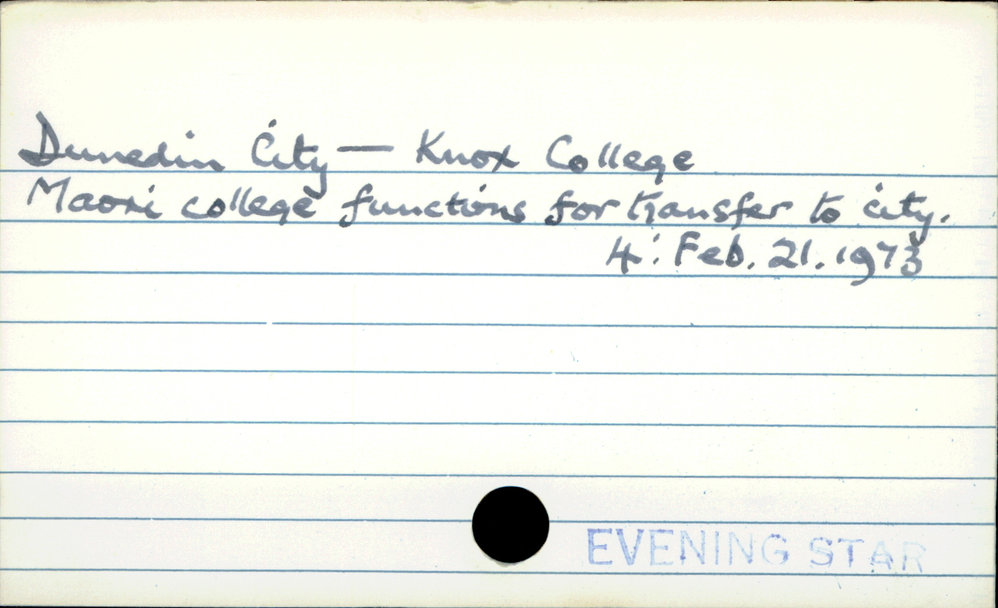 Dunedin City — Knox College
Maori college functions for transfer to city.
4: Feb. 21. 1973
EVENING STAR